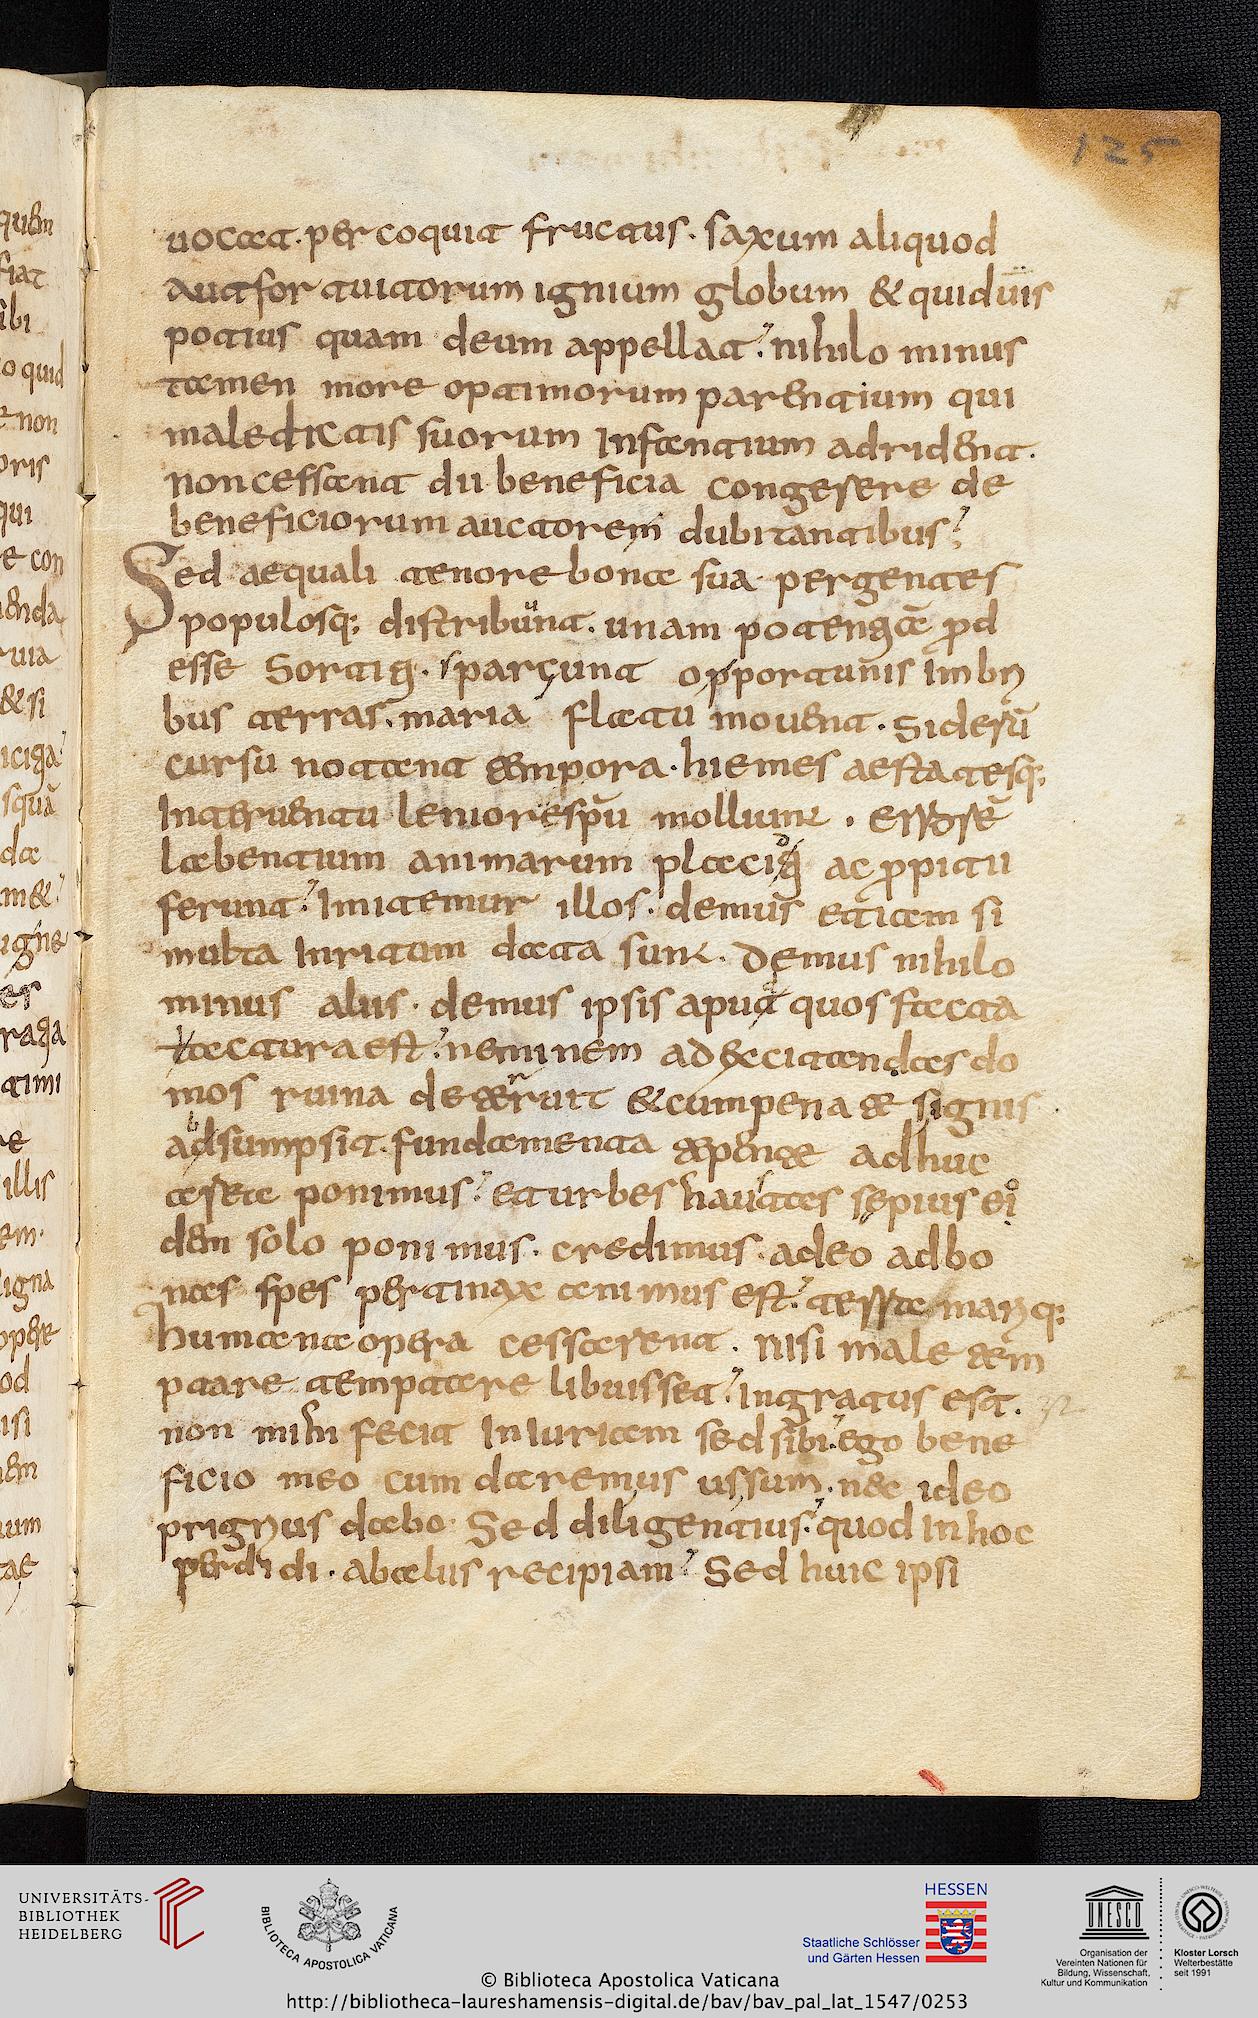 125
uocat. per coquit fructus. saxum aliquod
aut fortuitorum ignium globum & quiduis
potius quam deum appellat. nihilo minus
tamen more optimorum parentium qui
maledictis suorum Infantium adrident.
non cessant dii beneficia congerere de
beneficiorum auctorem dubitantibus.
Sed aequali tenore bona sua pergentes
populosq; distribuunt. unam potentiā ꝓd
esse Sortiti. sparçunt opportunis Imbri
bus terras. maria flatu mouent. siderū
cursu notant tempora. hiemes aestatesq;
Interuentu leniores spū molliunt. errorē
labentium animarum placidi ac ꝓpitii
ferunt. Imitemur illos. demus etiam si
multa Inritum data sunt. Demus nihilo
minus aliis. demus ipsis apud quos facta
iactura est. neminem ad excitandas do
mos ruina deterruit & cum penates ignis
adsumpsit. fundamenta tepente adhuc
area ponimus. et urbes haustas sepius ei
dem solo ponimus. credimus. adeo ad bo
nas spes pertinax animus est. terra mariq;
humana opera cessarent. nisi male tem
ptare temptare libuisset. Ingratus est.
non mihi fecit Iniuriam sed sibi. ego bene
ficio meo cum daremus ussum. nec ideo
prigrius dabo. Sed diligentius. quod In hoc
perdidi. ab alus recipiam. Sed huic ipsi
UNIVERSITÄTS-
BIBLIOTHEK
HEIDELBERG
BIBLIOTECA APOSTOLICA VATICANA
HESSEN
Staatliche Schlösser
und Gärten Hessen
UNESCO
Organisation der
Vereinten Nationen für
Bildung, Wissenschaft,
Kultur und Kommunikation
Kloster Lorsch
Welterbestätte
seit 1991
© Biblioteca Apostolica Vaticana
http://bibliotheca-laureshamensis-digital.de/bav/bav_pal_lat_1547/0253